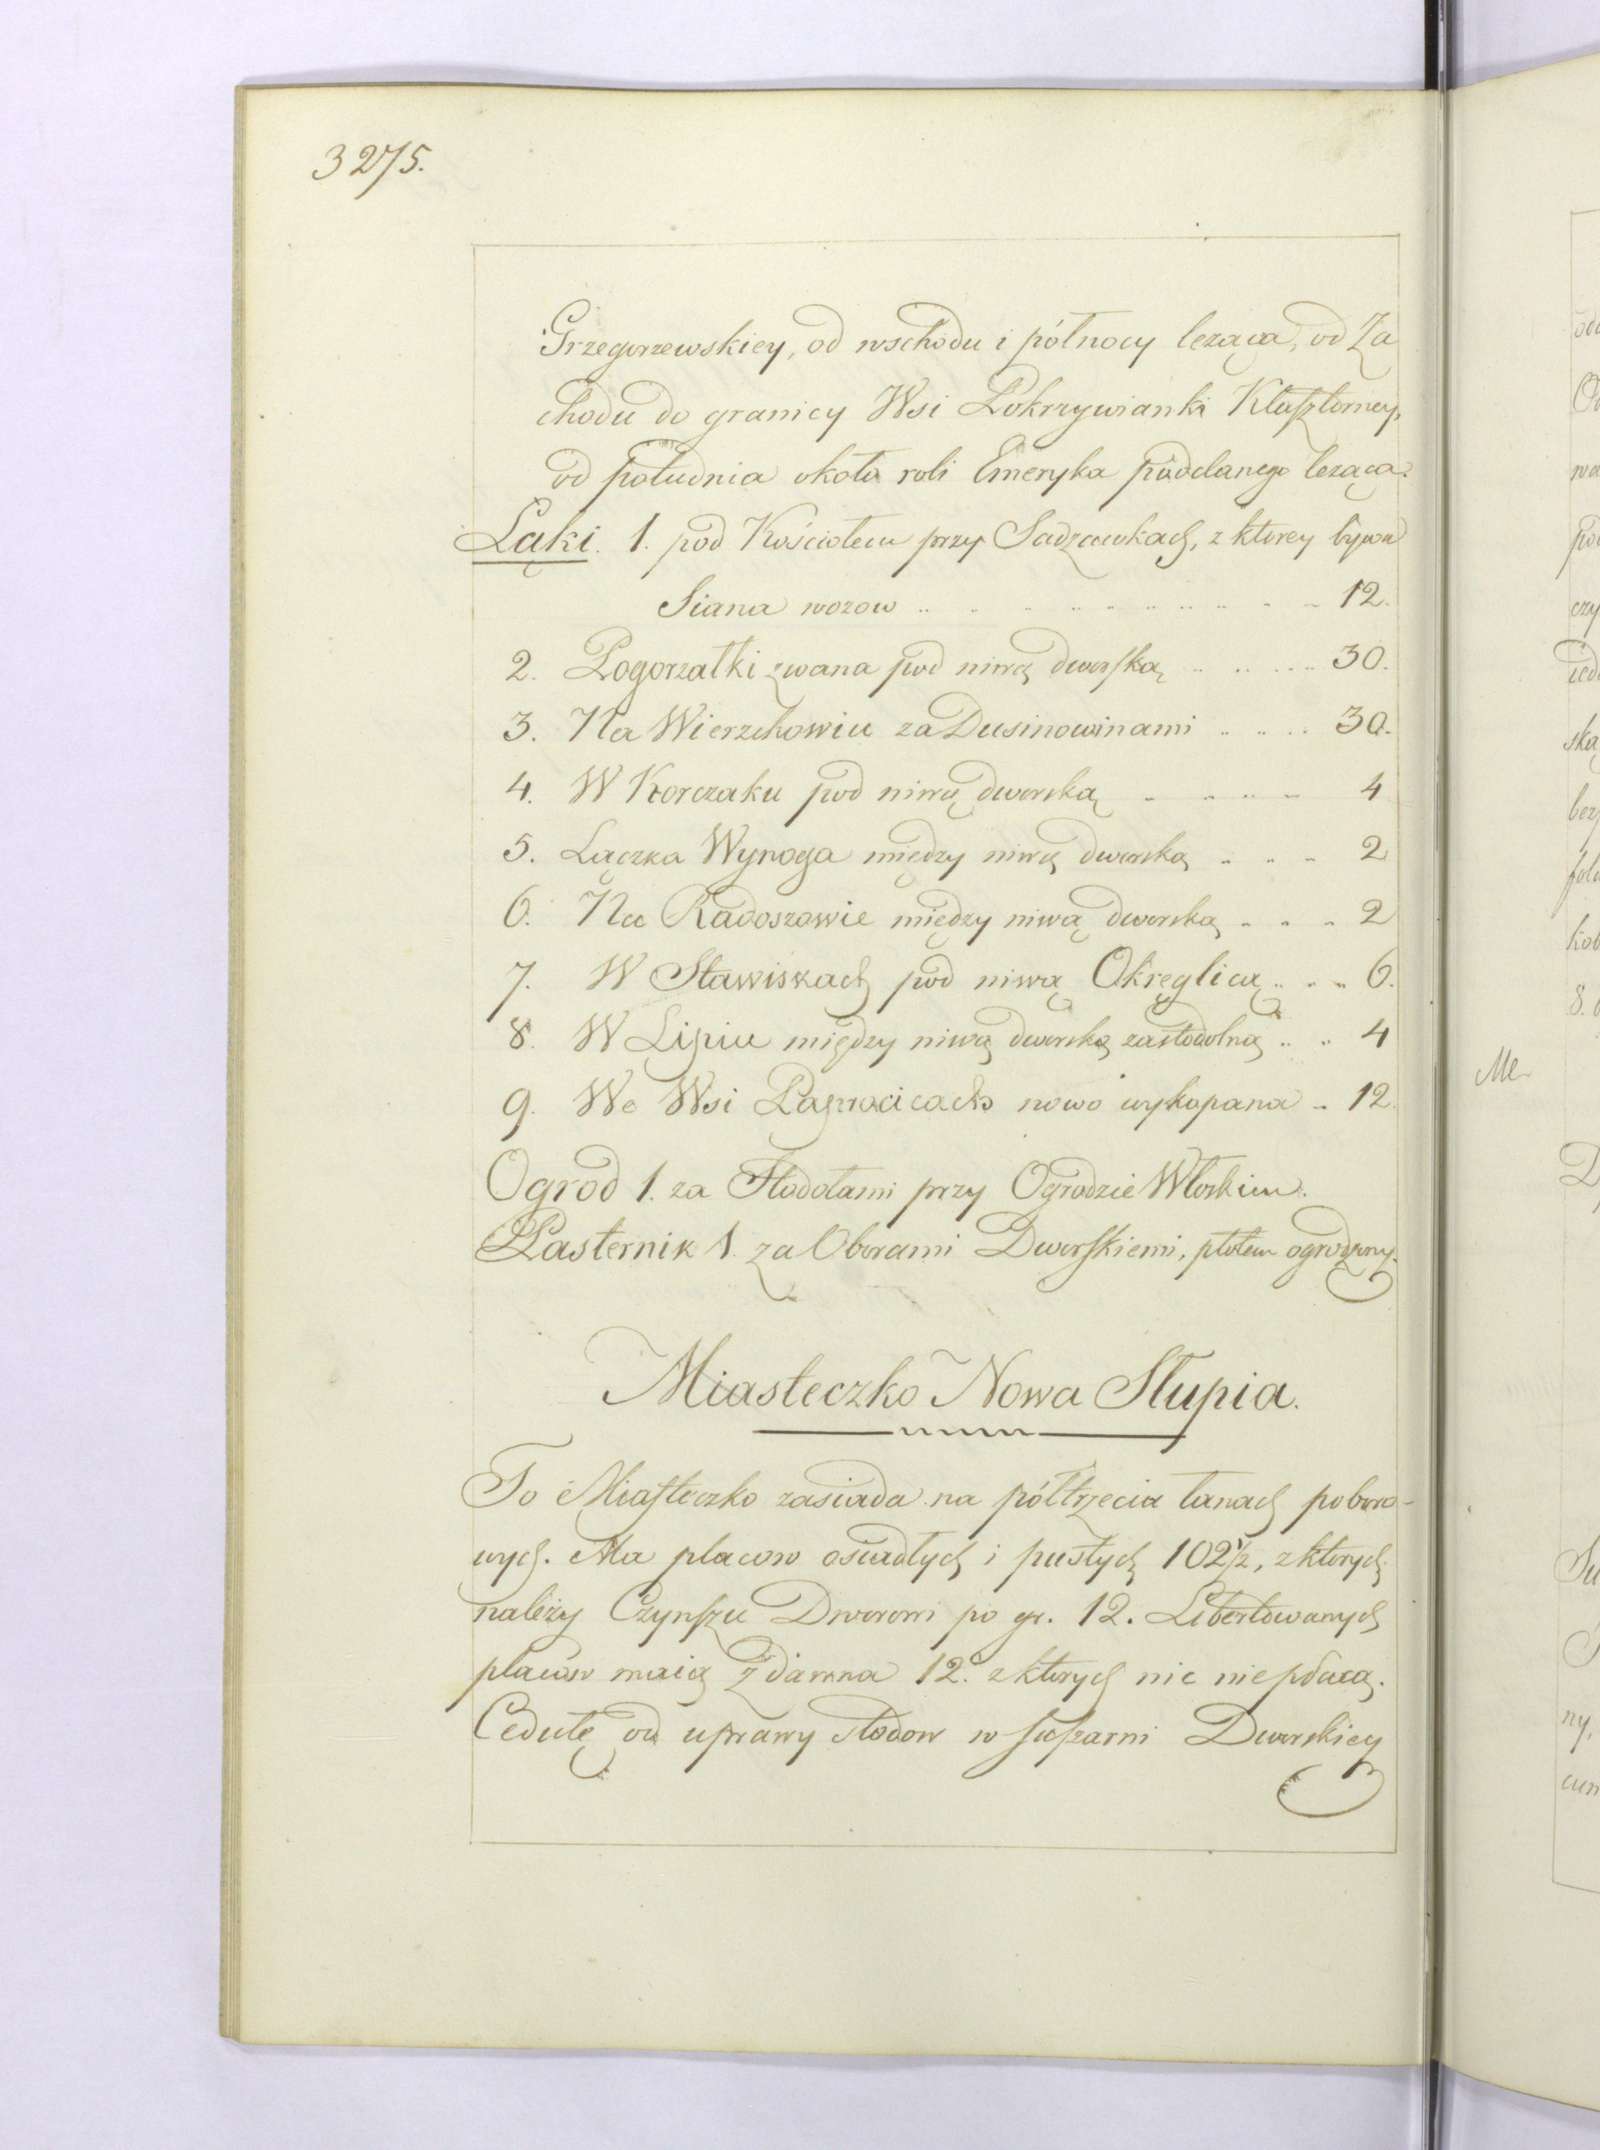 3275.
Grzegorzewskiey, od wschodu i północy leząca, od Za
chodu do granicy Wsi Pokrzywianki Klasztorney,
od południa około roli Emeryka poddanego leząca.
Łąki. 1. pod Kościołem przy Sadzawkach, z ktorey bywa
Siana wozow .. .. .. .. .. .. .. 12.
2. Pogorzałki zwana pod niwą dworską .. .. .. 30.
3. Na Wierzchowiu za Dusinowinami .. .. .. 30.
4. W Korczaku pod niwą dworską .. .. .. 4
5. Łączka Wynoga między niwą dworską .. .. .. 2
6. Na Radoszowie między niwą dworską .. .. .. 2
7. W Stawiskach pod niwą Okręglicą .. .. .. 6.
8. W Lipiu między niwą dworską zastodolną .. .. 4
9. We Wsi Paprocicach nowo wykopana .. 12.
Ogrod 1. za Stodołami przy Ogrodzie Włoskim.
Pasternik 1. za Oborami Dworskiemi, płotem ogrodzony.
Miasteczko Nowa Słupia.
To Miasteczko zasiada na półtrzecia łanach poboro-
wych. Ma placow osiadłych i pustych 102 1/2, z ktorych
należy Czynszu Dworowi po gr. 12. Libertowanych
placow maią z dawna 12. z ktorych nic niepłacą.
Cedułę od uprawy słodow w suszarni Dworskiey
Me